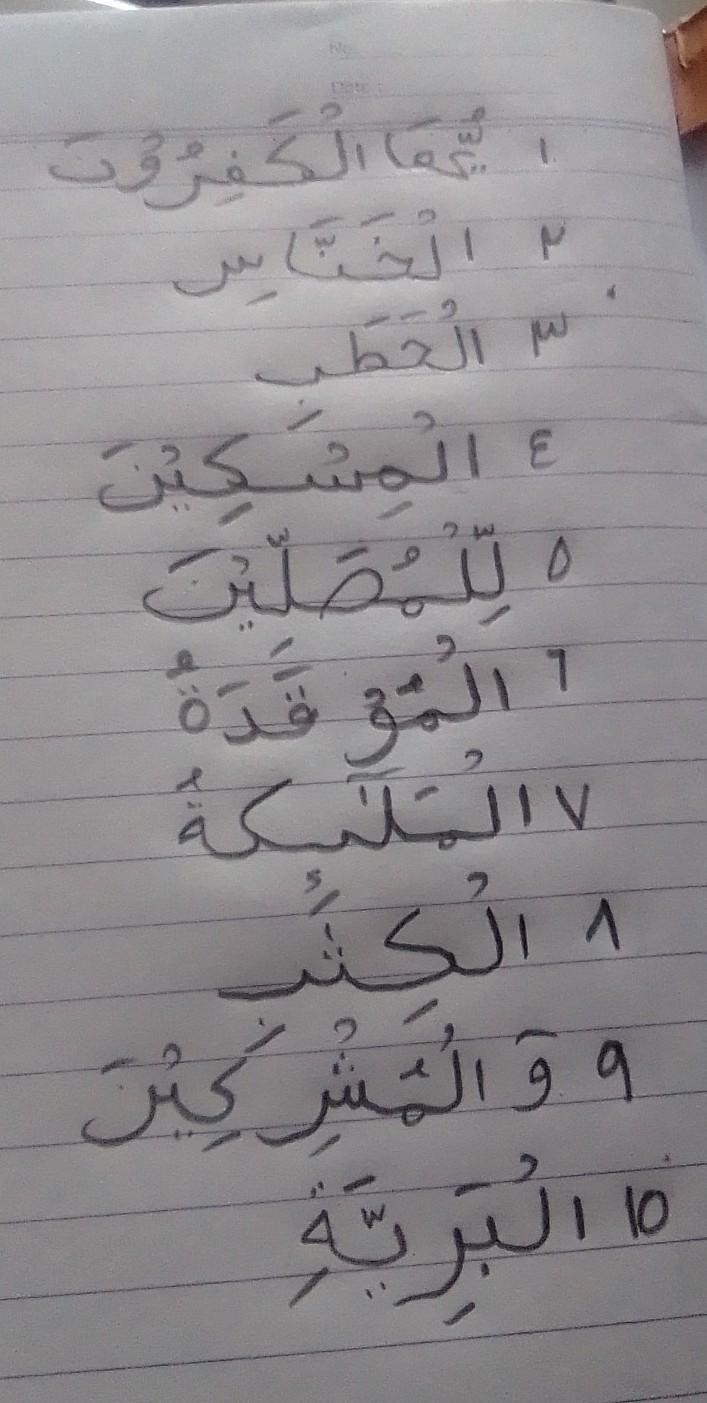 ١ يُّهَا الْكَفِرُوْنَ
٢ الْخَنَّاسِ
٣ الْحَطَبِ
٤ الْمِسْكِيْنَ
٥ لِّلْمُصَلِّيْنَ
٦ الْمُوْ قَدَةُ
٧ الْمَلٰٓىِٕكَةُ
٨ الْكِتٰبِ
٩ وَ الْمُشْرِ كِيْنَ
١٥ الْبَرِيَّةِ